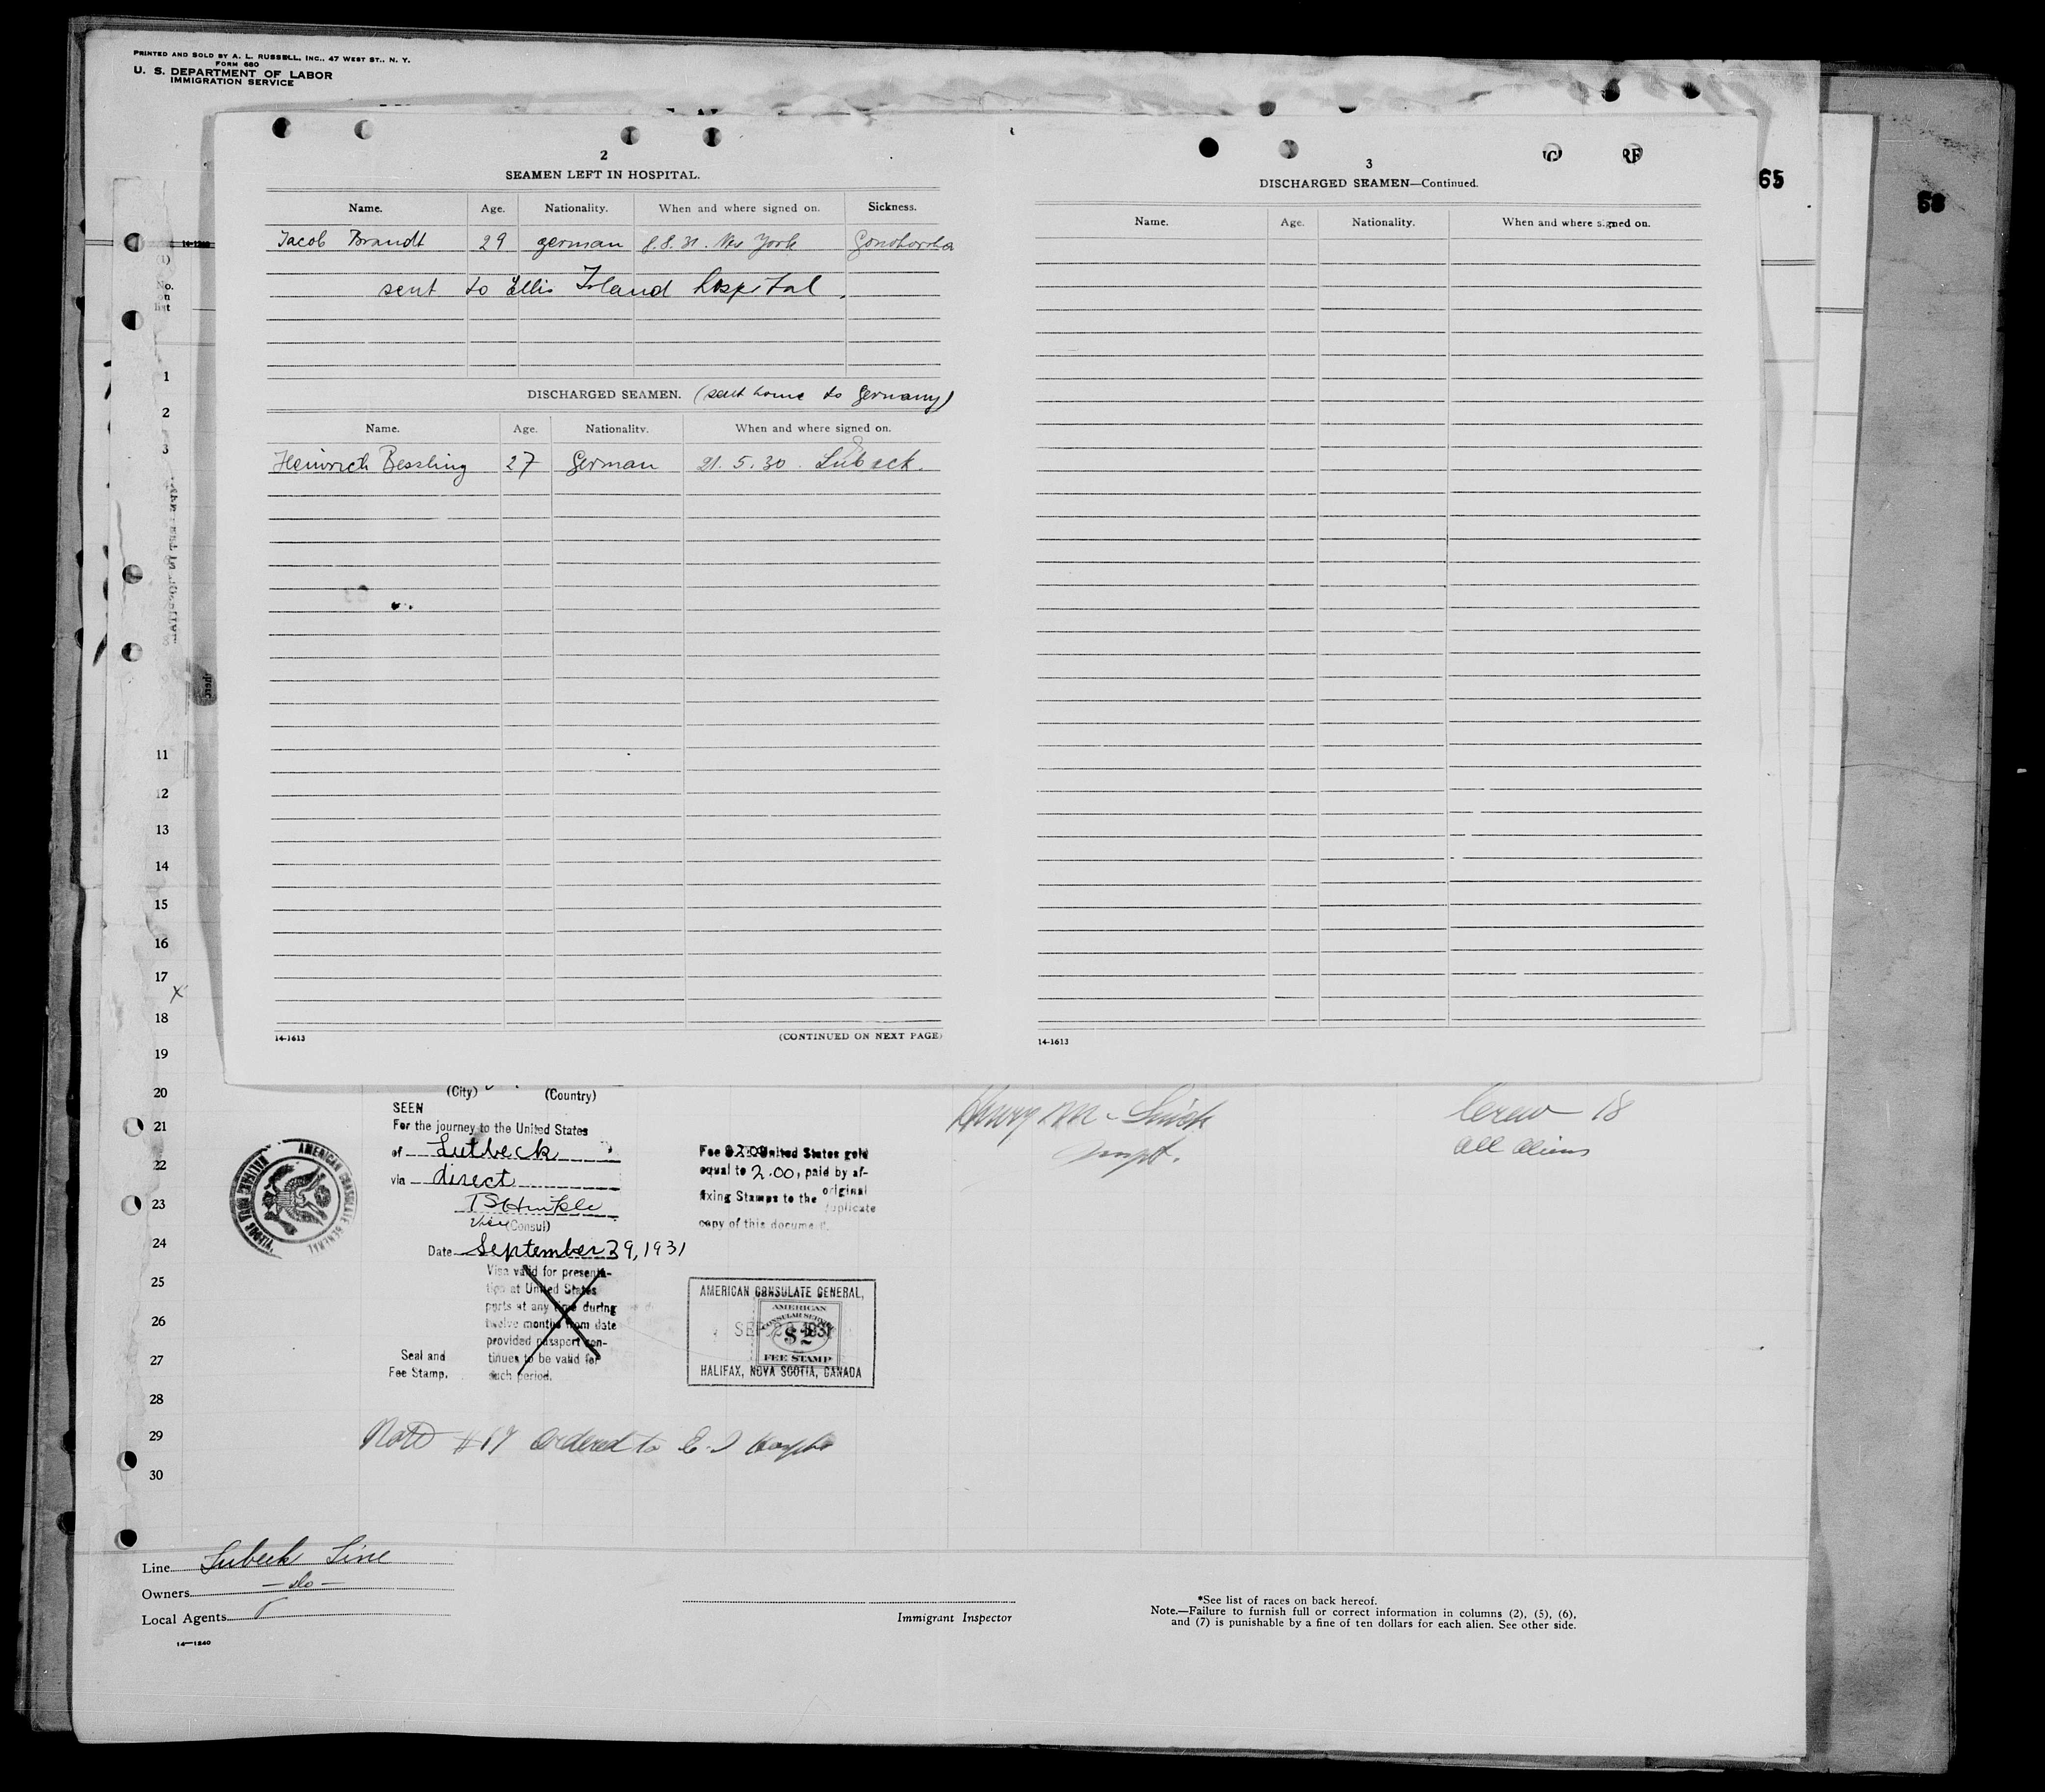 PRINTED AND SOLD BY A. L. RUSSELL, INC., 47 WEST ST., N. Y.
FORM 680
U. S. DEPARTMENT OF LABOR
IMMIGRATION SERVICE
65
68
2
SEAMEN LEFT IN HOSPITAL.
Name. Age. Nationality. When and where signed on. Sickness.
Jacob Brandt 29 german 8.8.31. New York Gonohorrhoa
sent to Ellis Island hospital.
DISCHARGED SEAMEN. (sent home to Germany)
Name. Age. Nationality. When and where signed on.
Heinrich Bessling 27 German 21.5.30. Lübeck.
14-1613 (CONTINUED ON NEXT PAGE)
3
DISCHARGED SEAMEN—Continued.
Name. Age. Nationality. When and where signed on.
14-1613
No.
on
list
1
2
3
11
12
13
14
15
16
17
18
19
20
21
22
23
24
25
26
27
28
29
30
(City) (Country)
SEEN
For the journey to the United States
of Lutbeck
via direct
Vice (Consul)
Date September 29, 1931
Visa valid for presenta-
tion at United States
ports at any time during
twelve months from date
provided passport con-
tinues to be valid for
such period.
Seal and
Fee Stamp.
AMERICAN CONSULATE GENERAL
Fee $2.00 United States gold
equal to 2.00, paid by af-
fixing Stamps to the original
duplicate
copy of this document.
AMERICAN CONSULATE GENERAL,
SEP 29 1931
AMERICAN
CONSULAR SERVICE
$2
FEE STAMP
HALIFAX, NOVA SCOTIA, CANADA
Crew 18
all aliens
Note #17 ordered to E. I Hospt
Line Lubeck Line
Owners —do—
Local Agents
14—1240
Immigrant Inspector
*See list of races on back hereof.
Note.—Failure to furnish full or correct information in columns (2), (5), (6),
and (7) is punishable by a fine of ten dollars for each alien. See other side.